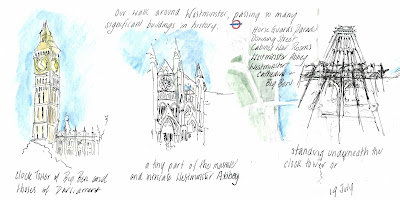 Our walk around Westminster passing so many
significant buildings in history.
Horse Guards Parade
Downing Street
Cabinet War Rooms
Westminster Abbey
Westminster
Cathedral
Big Ben
Clock Tower of Big Ben and
Houses of Parliament
a tiny part of the
and Westminster Abbey
standing underneath the
clock tower or
19 July